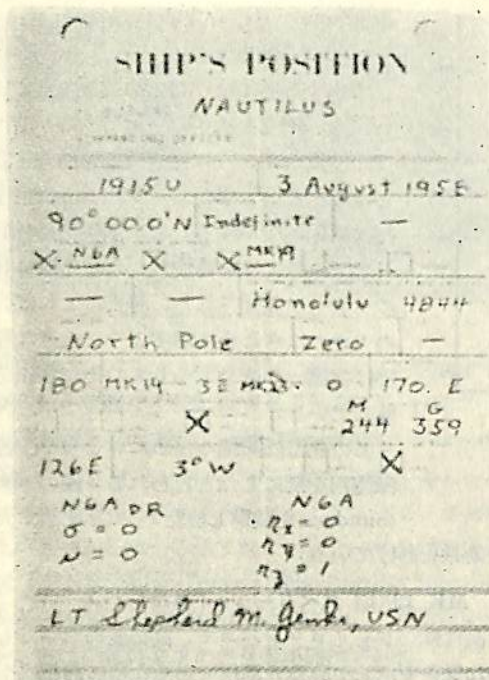 SHIP'S POSITION
NAUTILUS
1915U 3 August 1958
90° 00.0'N Indefinite —
X N6A X X MK19
— — Honolulu 4844
North Pole Zero —
180 MK14 MK23 0 170. E
M G
X 244 359
126E 3°W X
N6A DR N6A
σ = 0 nx = 0
μ = 0 ny = 0
nz = 1
LT Shepherd M. Jenks, USN